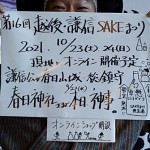 第16回 越後・謙信SAKEまつり
2021. 10/23(土)24(日)
現地・オンライン開催予定
謙信公が春日山城 総鎮守
春日神社
神事
オンラインショップ開設